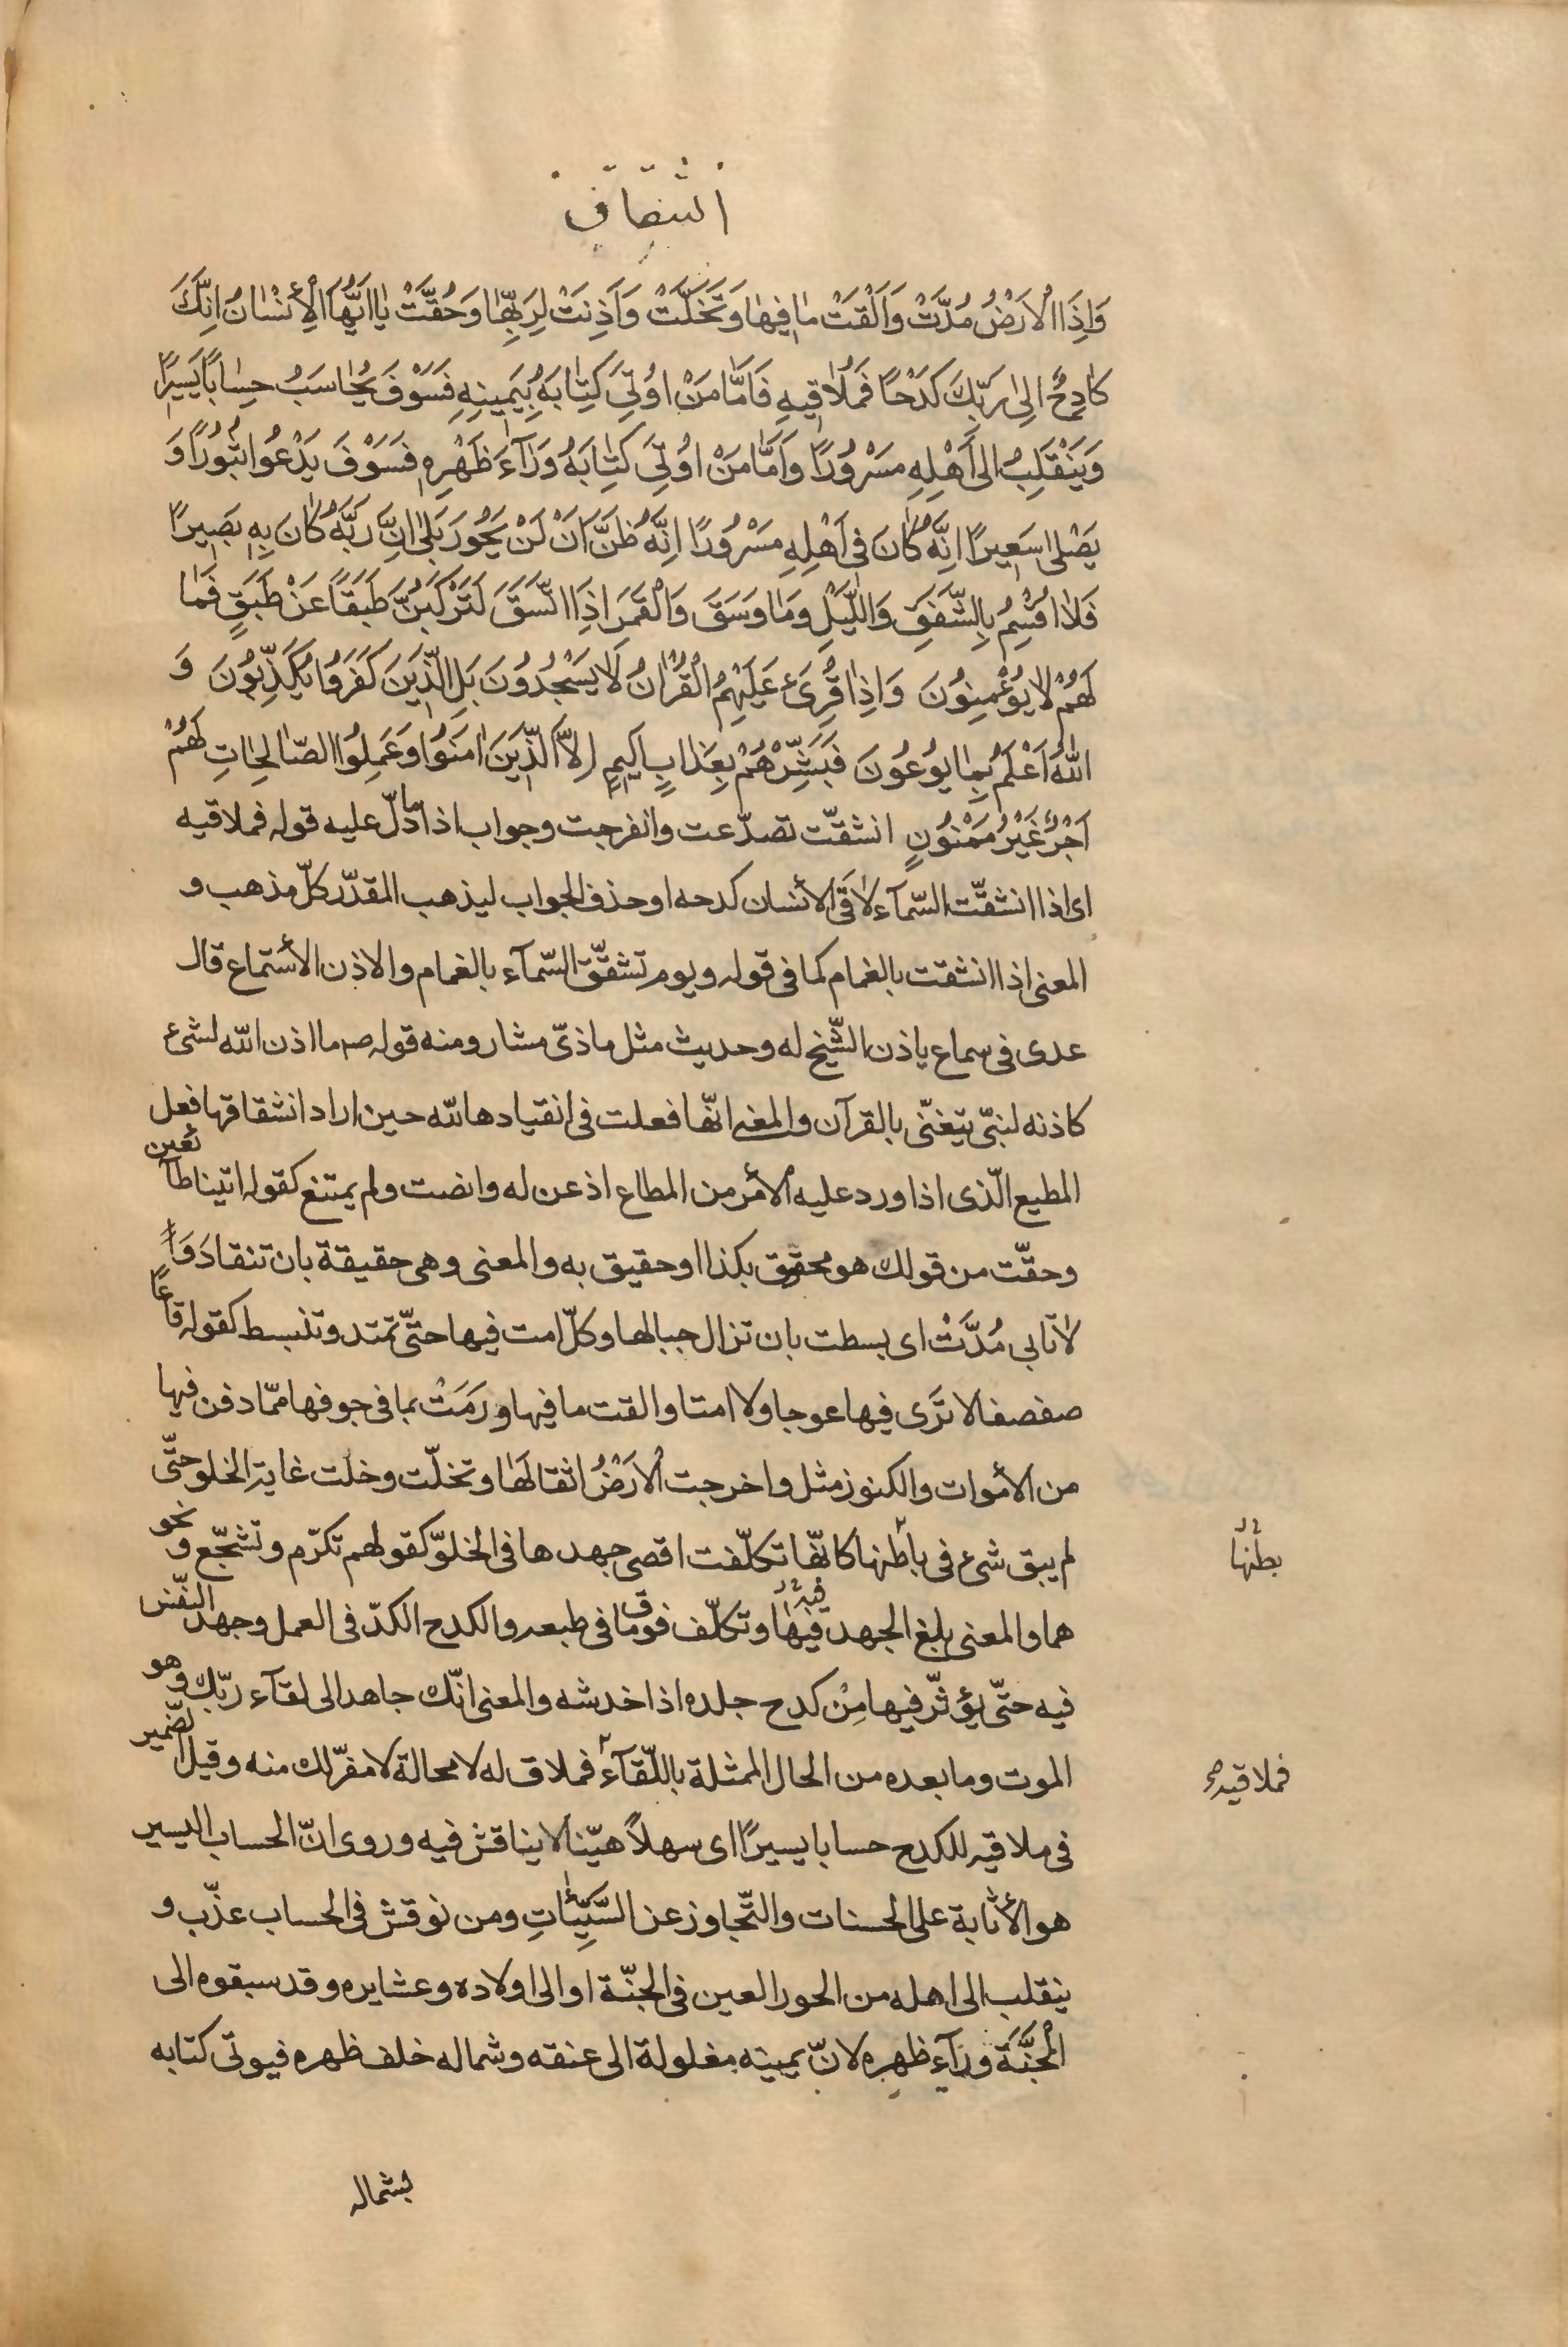 انشقاق
وَاِذَا الْاَرْضُ مُدَّتْ وَاَلْقَتْ مٰا فِیهٰا وَتَخَلَّتْ وَاَذِنَتْ لِرَبِّهٰا وَحُقَّتْ یٰا اَیُّهَا الْأِنْسٰانُ اِنَّكَ
كٰادِحٌ اِلٰی رَبِّكَ كَدْحًا فَمُلٰاقِیهِ فَاَمّٰا مَنْ اُوتِیَ كِتٰابَهُ بِیَمِینِهِ فَسَوْفَ یُحٰاسَبُ حِسٰابًا یَسِیرًا
وَیَنْقَلِبُ اِلٰی اَهْلِهِ مَسْرُورًا وَاَمّٰا مَنْ اُوتِیَ كِتٰابَهُ وَرٰآءَ ظَهْرِهِ فَسَوْفَ یَدْعُوا ثُبُورًا وَ
یَصْلٰی سَعِیرًا اِنَّهُ كٰانَ فِی اَهْلِهِ مَسْرُورًا اِنَّهُ ظَنَّ اَنْ لَنْ یَحُورَ بَلٰی اِنَّ رَبَّهُ كٰانَ بِهِ بَصِیرًا
فَلٰا اُقْسِمُ بِالشَّفَقِ وَاللَّیْلِ وَمٰا وَسَقَ وَالْقَمَرِ اِذَا اتَّسَقَ لَتَرْكَبُنَّ طَبَقًا عَنْ طَبَقٍ فَمٰا
لَهُمْ لٰا یُؤْمِنُونَ وَاِذٰا قُرِیَٔ عَلَیْهِمُ الْقُرْاٰنُ لٰا یَسْجُدُونَ بَلِ الَّذِینَ كَفَرُوا یُكَذِّبُونَ وَ
اللّٰهُ اَعْلَمُ بِمٰا یُوعُونَ فَبَشِّرْهُمْ بِعَذٰابٍ اَلِیمٍ اِلاَّ الَّذِینَ اٰمَنُوا وَعَمِلُوا الصّٰالِحٰاتِ لَهُمْ
اَجْرٌ غَیْرُ مَمْنُونٍ انشقّت تصدّعت وانفرجت وجواب اذا ما دلّ علیه قوله فملاقیه
ای اذا انشقّت السّمآء لاقَی الأنسان كدحه او حذف الجواب لیذهب المقدّر كلّ مذهب و
المعنی اذا انشقت بالغمام كما فی قوله ویوم تشقّق السّمآء بالغمام والاذن الأستماع قال
عدی فی سماع یاذن الشّیخ له وحدیث مثل ماذیّ مشار ومنه قوله ص ما اذن اللّه لشیء
كاذنه لنبیّ یتغنّی بالقرآن والمعنی انّها فعلت فی انقیادها للّه حین اراد انشقاقها فعل
المطیع الّذی اذا ورد علیه الأمر من المطاع اذعن له وانصت ولم یمتنع كقوله اتینا طآئعین
وحقّت من قولك هو محقوق بكذا او حقیق به والمعنی وهی حقیقة بان تنقاد وَ
لاتابی مُدَّتْ ای بسطت بان تزال جبالها وكلّ امت فیها حتّی تمتد وتنبسط كقوله قاعًا
صفصفا لا تَرَی فیها عوجا ولا امتا والقت ما فیها ورَمَتْ بما فی جوفها ممّا دفن فیها
من الأموات والكنوز مثل واخرجت الاَرْضُ اثقالَهٰا وتخلّت وخلت غایة الخلو حتّی
لم یبق شیء فی باطنها كانّها تكلّفت اقصی جهدها فی الخلوّ كقولهم تكرّم وتشجّع و نحو
بطنها
هما والمعنی بلغ الجهد فیها فیه وتكلّف فوق ما فی طبعه والكدح الكدّ فی العمل وجهد النّفس
فیه حتّی یؤثّر فیها مِنْ كدح جلده اذا خدشه والمعنی انّك جاهد الی لقآء ربّك وهو
الموت وما بعده من الحال الممثلة باللّقآء فملاق له لا محالة لا مفرّ لك منه وقیل الضّمیر
فملاقیه
فی ملاقیه للكدح حسابا یسیرًا ای سهلًا هیّنا لا یناقش فیه وروی انّ الحساب الیسیر
هو الأثابة علی الحسنات والتّجاوز عن السَّیِّئٰاتِ ومن نوقش فی الحساب عذّب و
ینقلب الی اهله من الحور العین فی الجنّة او الی اولاده وعشایره وقد سبقوه الی
الْجَنَّةَ ورآءِ ظهره لانّ یمینه مغلولة الی عنقه وشماله خلف ظهره فیوتی كتابه
بشماله